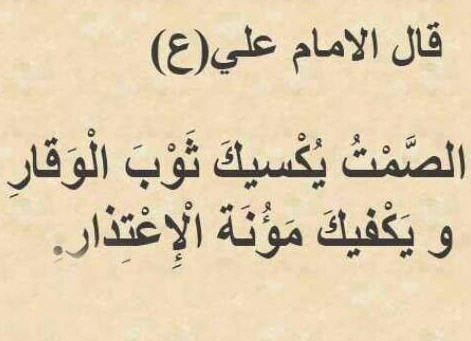 قال الامام علي(ع)
الصَّمْتُ يُكْسيكَ ثَوْبَ الْوَقارِ
و يَكْفيكَ مَؤُنَة الْإِعْتِذارِ.